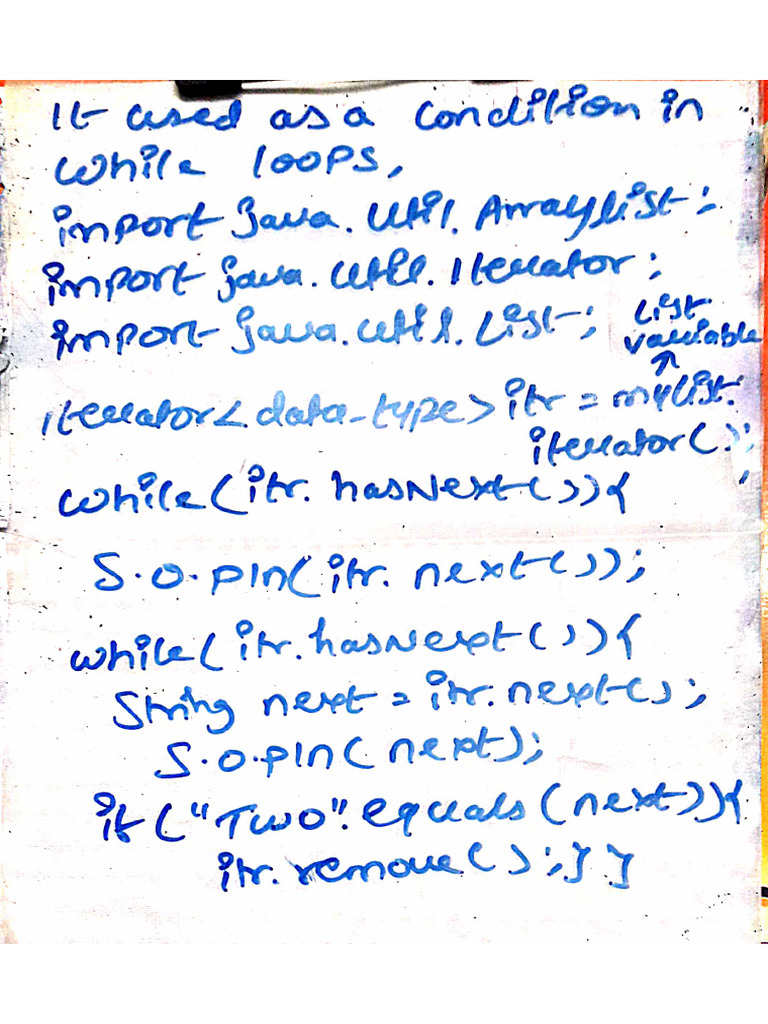 It used as a condition in
while loops,
import java.util.Arraylist;
import java.util.Iterator;
import java.util.List;
List
variable
↑
Iterator<data_type> itr = mylist.
iterator();
while(itr.hasNext()){
S.O.pln(itr.next());
while(itr.hasNext()){
String next = itr.next();
S.O.pln(next);
if("Two".equals(next)){
itr.remove();}}